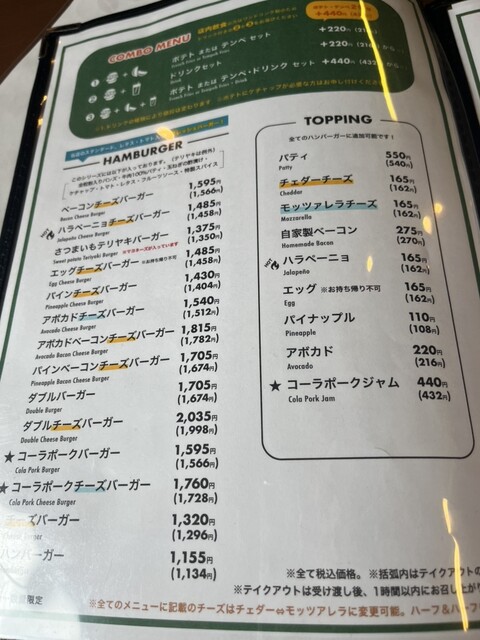 COMBO MENU
ポテト または テンペ セット
+220円
ドリンクセット
Drink
+220円 (216円)
ポテト または テンペ・ドリンク セット
+440円 (432円)
HAMBURGER
ベーコンチーズバーガー 1,595円
Bacon Cheese Burger (1,566円)
ハラペーニョチーズバーガー 1,485円
Jalapeño Cheese Burger (1,458円)
さつまいもテリヤキバーガー 1,375円
Sweet potato Teriyaki Burger ※マヨネーズが入っています (1,350円)
エッグチーズバーガー ※お持ち帰り不可 1,485円
Egg Cheese Burger (1,458円)
パインチーズバーガー 1,430円
Pineapple Cheese Burger (1,404円)
アボカドチーズバーガー 1,540円
Avocado Cheese Burger (1,512円)
アボカドベーコンチーズバーガー 1,815円
Avocado Bacon Cheese Burger (1,782円)
パインベーコンチーズバーガー 1,705円
Pineapple Bacon Cheese Burger (1,674円)
ダブルバーガー 1,705円
Double Burger (1,674円)
ダブルチーズバーガー 2,035円
Double Cheese Burger (1,998円)
★コーラポークバーガー 1,595円
Cola Pork Burger (1,566円)
★コーラポークチーズバーガー 1,760円
Cola Pork Cheese Burger (1,728円)
チーズバーガー 1,320円
Burger (1,296円)
ハンバーガー 1,155円
(1,134円)
限定
TOPPING
全てのハンバーガーに追加可能です!
パティ 550円
Patty (540円)
チェダーチーズ 165円
Cheddar (162円)
モッツァレラチーズ 165円
Mozzarella (162円)
自家製ベーコン 275円
Homemade Bacon (270円)
HOT ハラペーニョ 165円
Jalapeño (162円)
エッグ ※お持ち帰り不可 165円
Egg (162円)
パイナップル 110円
Pineapple (108円)
アボカド 220円
Avocado (216円)
★コーラポークジャム 440円
Cola Pork Jam (432円)
※全て税込価格。 ※括弧内はテイクアウトの
※テイクアウトは受け渡し後、1時間以内にお召し上が
※全てのメニューに記載のチーズはチェダー⇔モッツアレラに変更可能。ハーフ&ハーフ